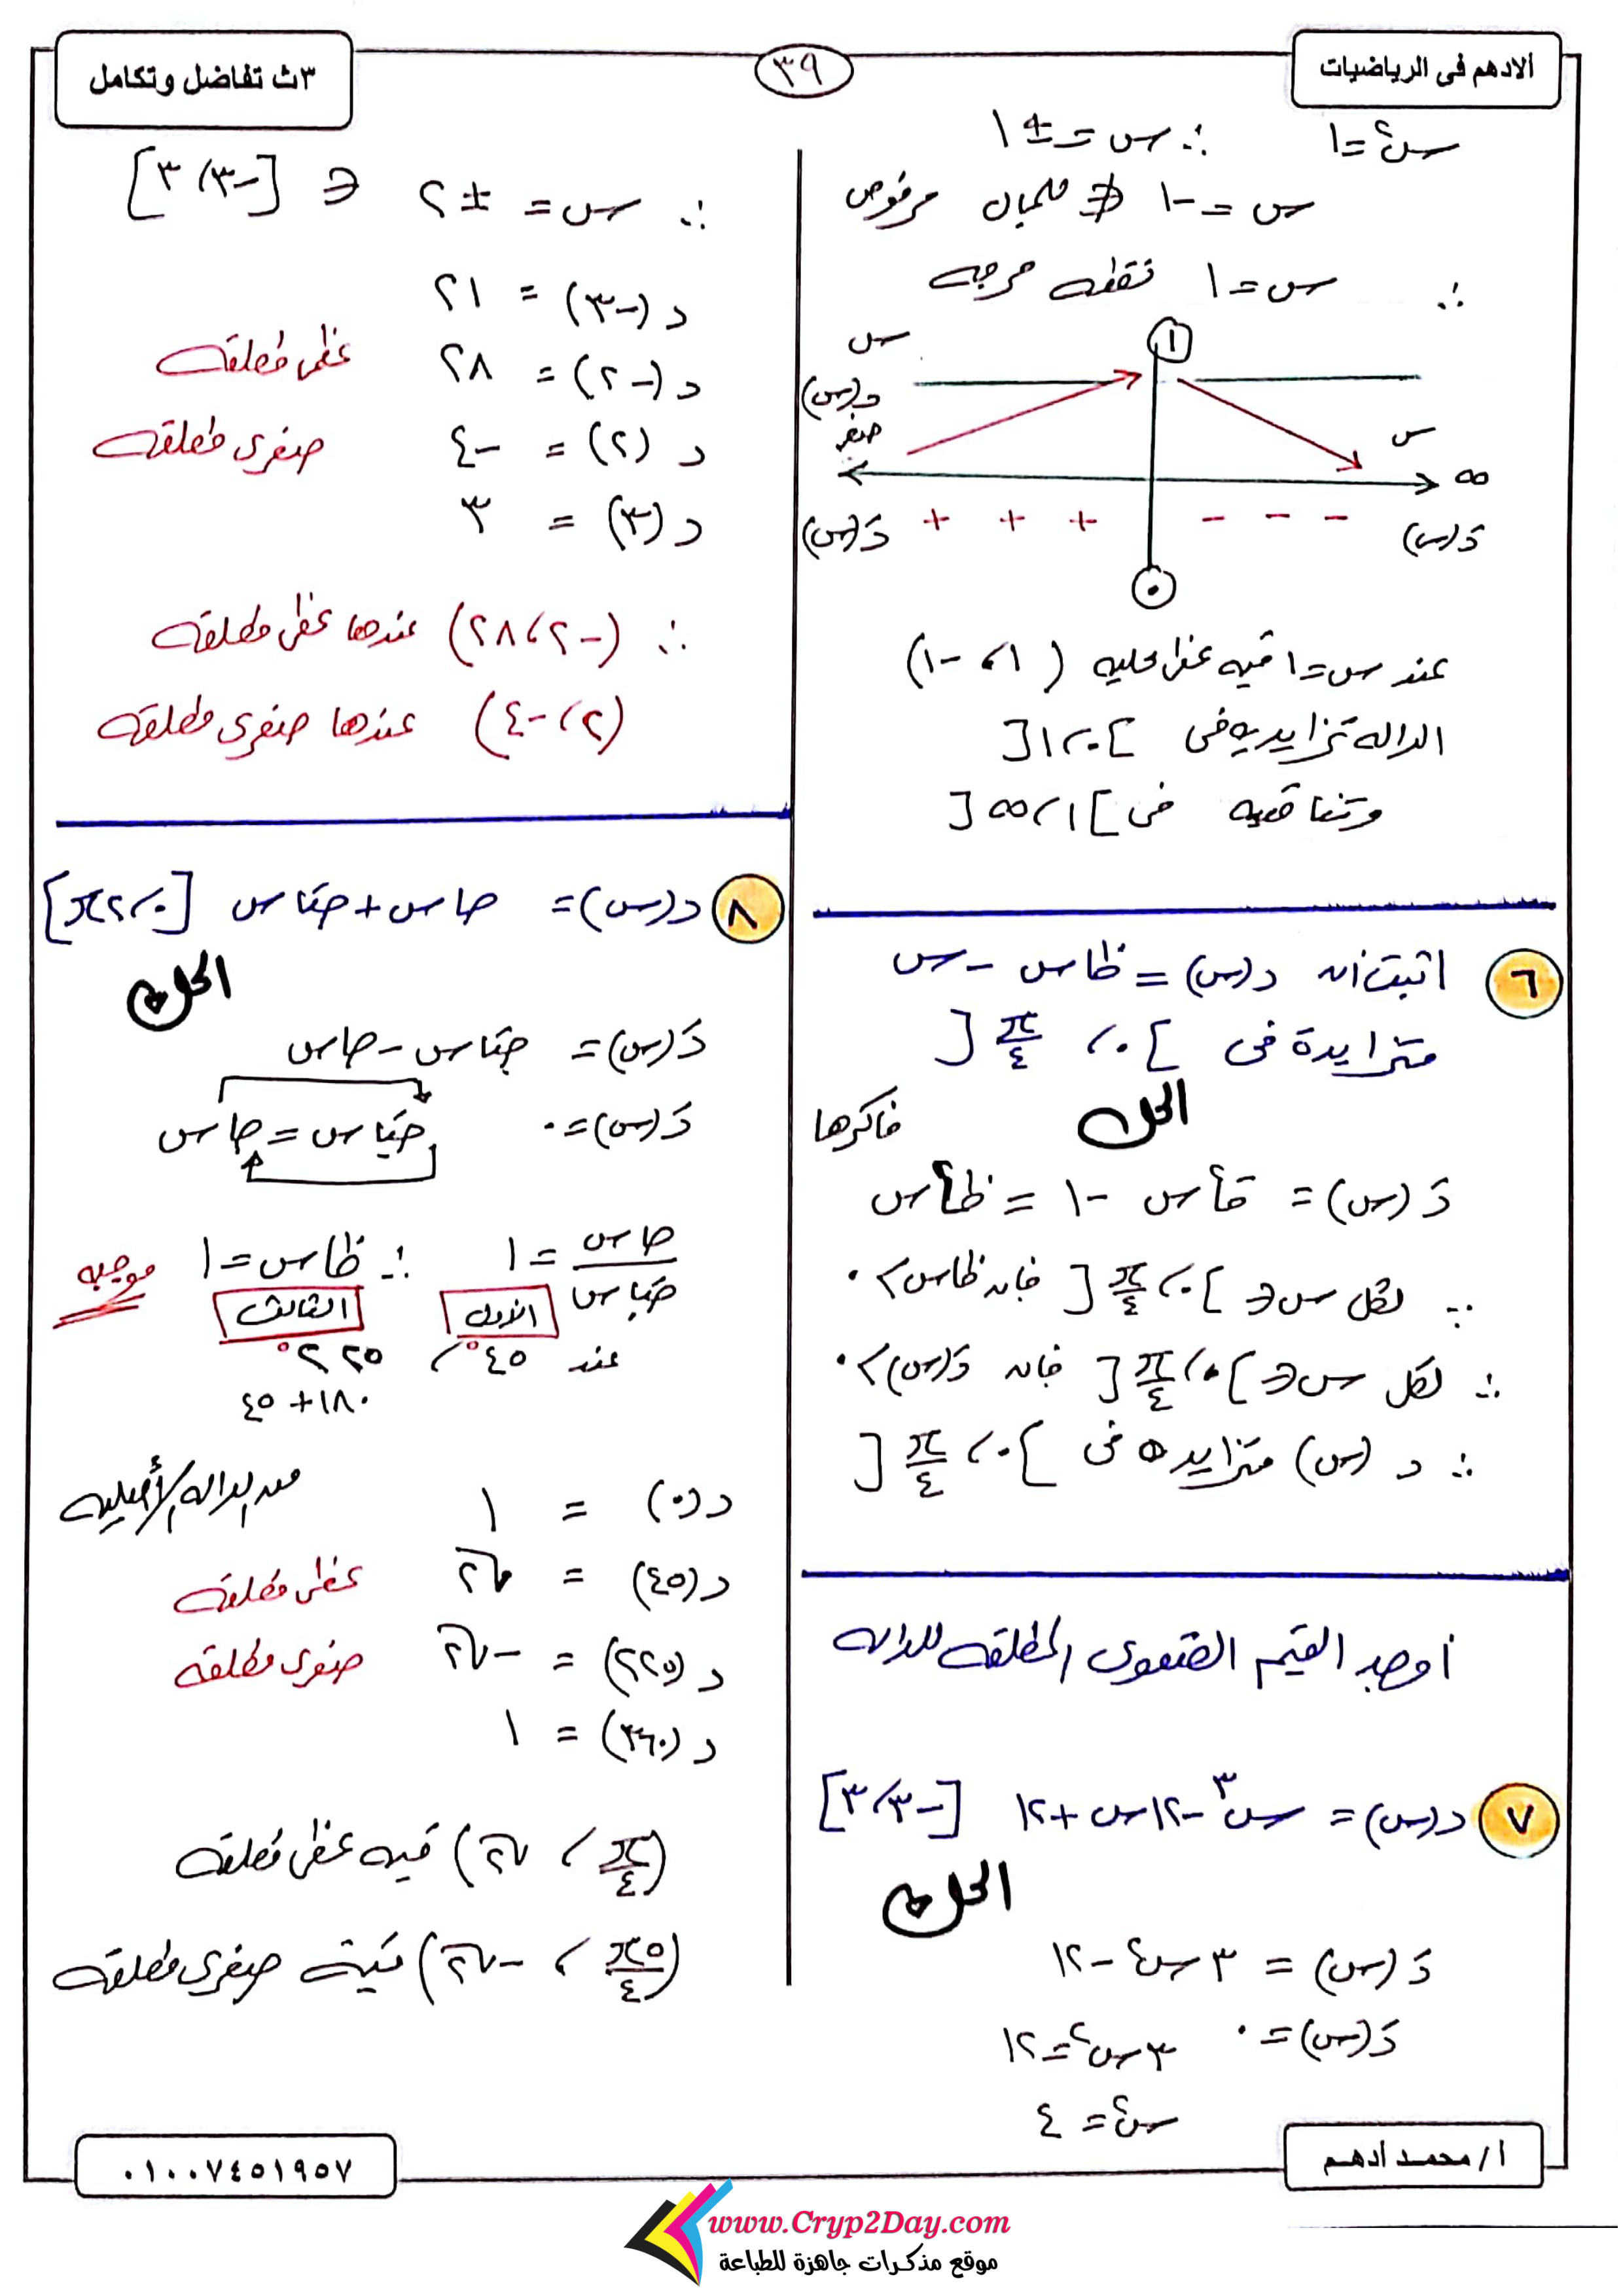 الادهم فى الرياضيات
٣٩
٣ث تفاضل وتكامل
س٢ = ١ ∴ س = ± ١
س = -١ ∉ للمجال مرفوض
∴ س = ١ نقطة حرجه
١
س
د(س)
صفر
س
∞
دَ(س) + + + - - - دَ(س)
٠
عند س = ١ قيمه عظمى محليه (١، -١)
الداله تزايديه فى ]٠، ١[
وتناقصيه فى ]١، ∞[
٦ اثبت ان د(س) = ظا س - س
متزايدة فى ]٠، π/٤[
الحل
فاكرها
دَ(س) = قا٢ س - ١ = ظا٢ س
∵ لكل س ∈ ]٠، π/٤[ فإن ظا س > ٠
∴ لكل س ∈ ]٠، π/٤[ فإن دَ(س) > ٠
∴ د(س) متزايده فى ]٠، π/٤[
أوجد القيم القصوى المطلقه للداله
٧ د(س) = س٣ - ١٢س + ١٢ [-٣، ٣]
الحل
دَ(س) = ٣س٢ - ١٢
دَ(س) = ٠ ٣س٢ = ١٢
س٢ = ٤
∴ س = ± ٢ ∈ [-٣، ٣]
د(-٣) = ٢١
د(-٢) = ٢٨ عظمى مطلقه
د(٢) = -٤ صغرى مطلقه
د(٣) = ٣
∴ (-٢، ٢٨) عندها عظمى مطلقه
(٢، -٤) عندها صغرى مطلقه
٨ د(س) = حا س + حتا س [٠، ٢π]
الحل
دَ(س) = حتا س - حا س
دَ(س) = ٠ حتا س = حا س
حا س/حتا س = ١ ∴ ظا س = ١ موجبه
الأول الثالث
عند ٤٥°، ٢٢٥°
١٨٠ + ٤٥
د(٠) = ١ من الداله الأصليه
د(٤٥) = √٢ عظمى مطلقه
د(٢٢٥) = -√٢ صغرى مطلقه
د(٣٦٠) = ١
(π/٤، √٢) قيمه عظمى مطلقه
(٥π/٤، -√٢) قيمة صغرى مطلقه
أ/ محمد أدهم
٠١٠٠٧٤٥١٩٥٧
www.Cryp2Day.com
موقع مذكرات جاهزة للطباعة